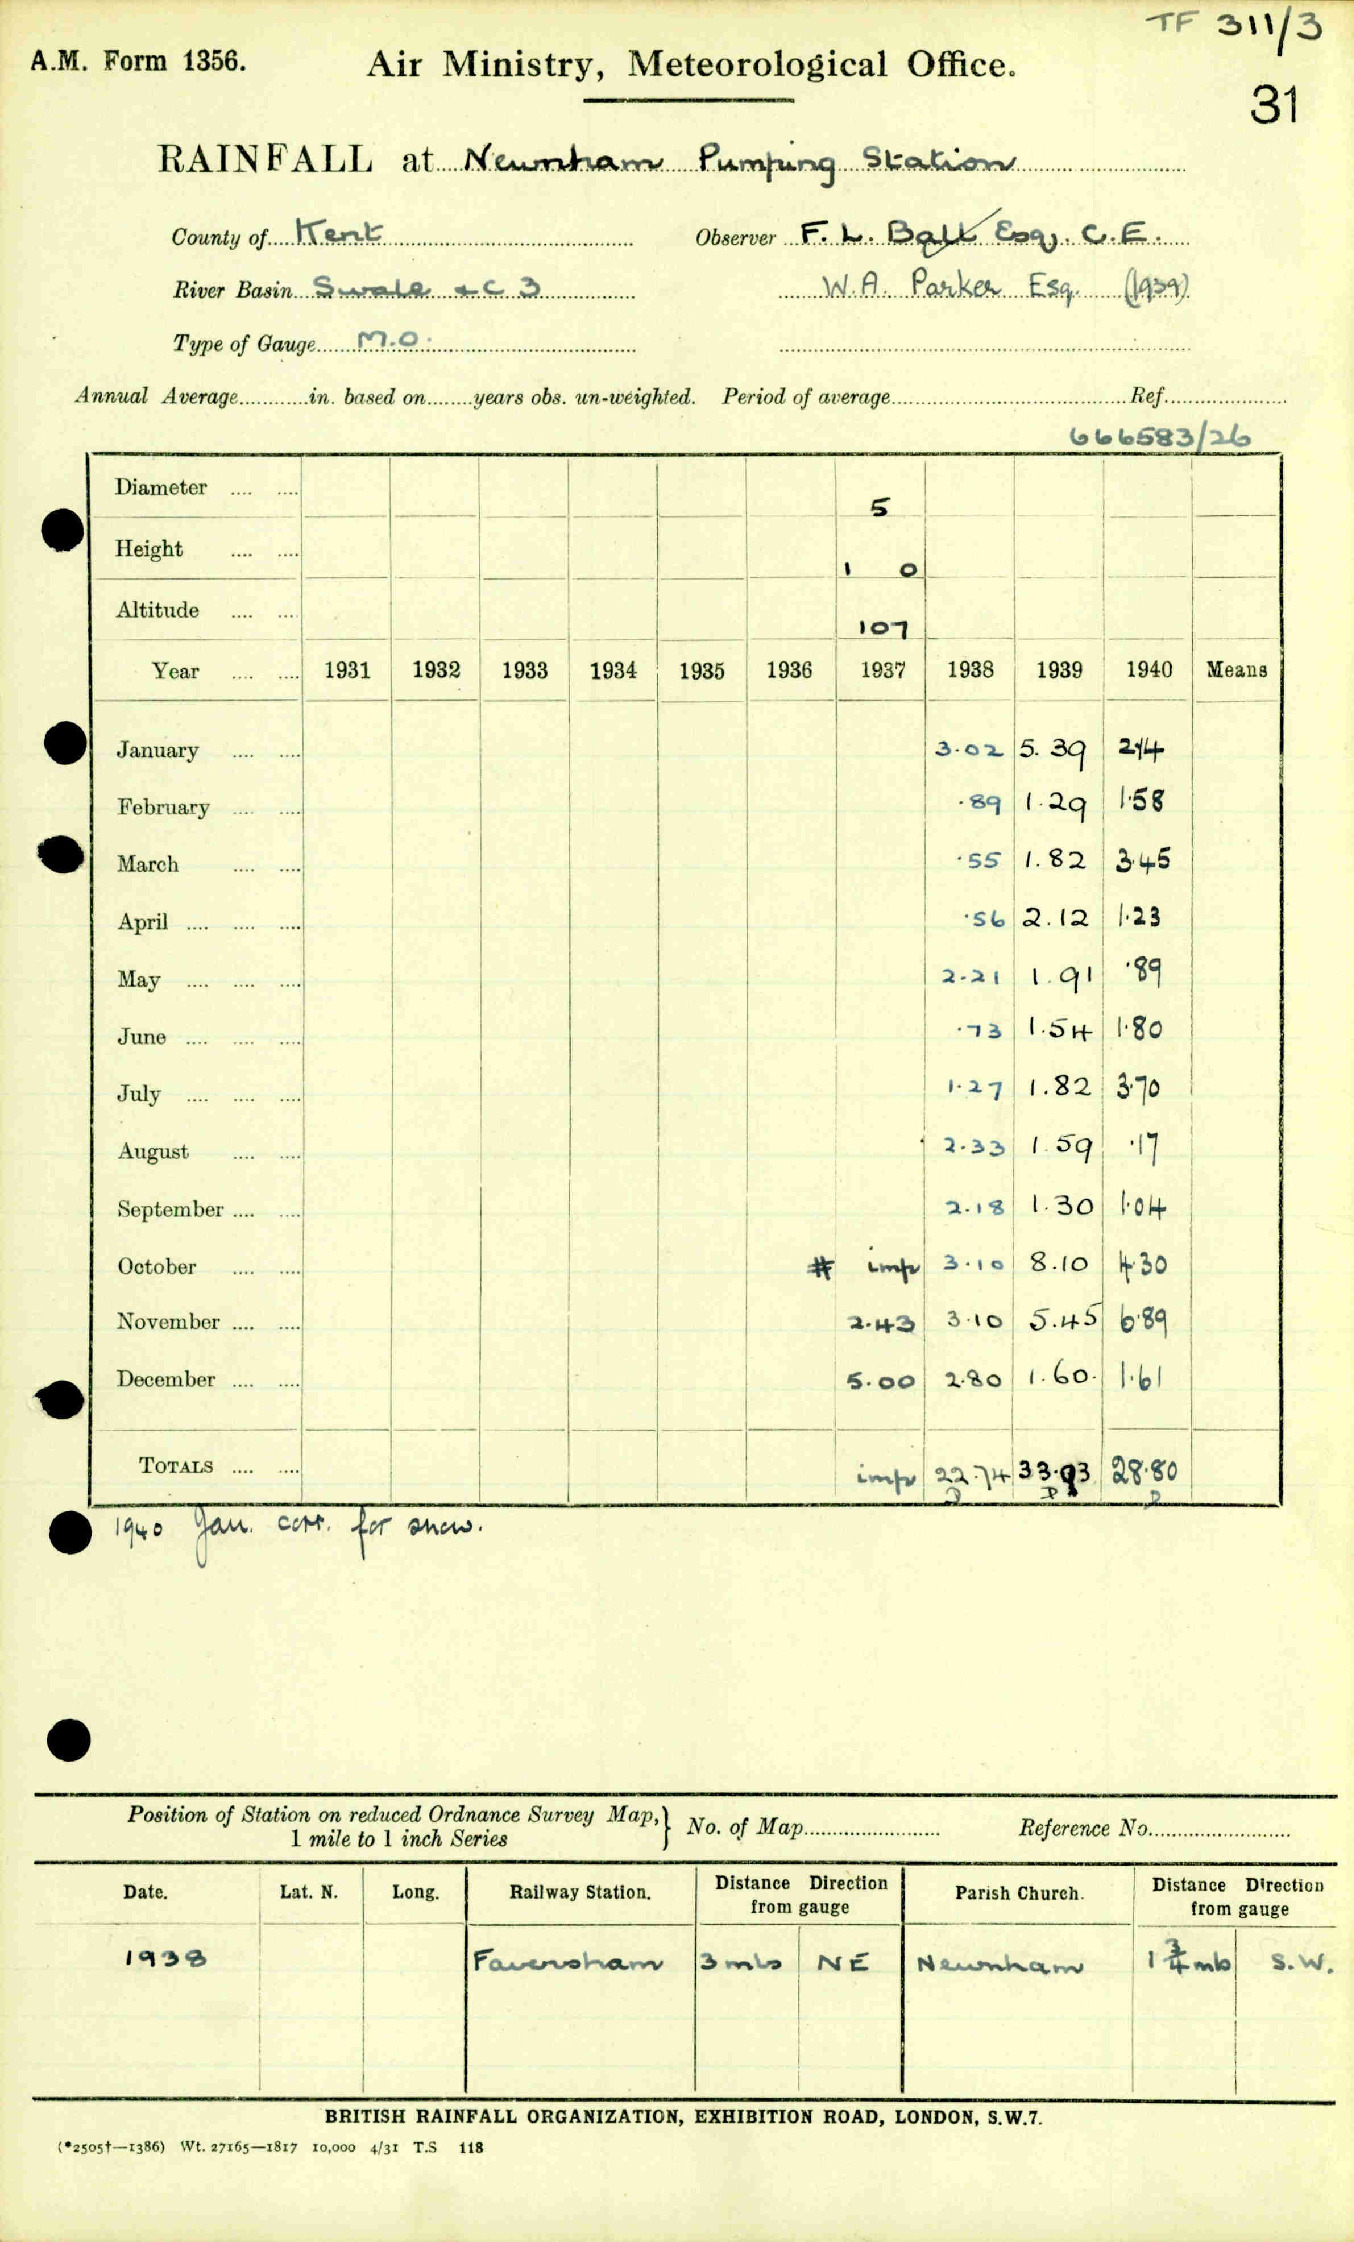 TF 311/3
A.M. Form 1356. Air Ministry, Meteorological Office.
31
RAINFALL at Newnham Pumping Station
County of Kent Observer F. L. Ball Esq. C.E.
River Basin Swale + C 3 W.A. Parker Esq. (1939)
Type of Gauge M.O.
Annual Average in. based on years obs. un-weighted. Period of average Ref.
666583/26
Diameter 5
Height 1 0
Altitude 107
Year 1931 1932 1933 1934 1935 1936 1937 1938 1939 1940 Means
January 3.02 5.39 2.14
February .89 1.29 1.58
March .55 1.82 3.45
April .56 2.12 1.23
May 2.21 1.91 .89
June .73 1.54 1.80
July 1.27 1.82 3.70
August 2.33 1.59 .17
September 2.18 1.30 1.04
October # imp 3.10 8.10 4.30
November 2.43 3.10 5.45 6.89
December 5.00 2.80 1.60 1.61
TOTALS imp 22.74 33.93 28.80
1940 Jan. corr. for snow.
Position of Station on reduced Ordnance Survey Map, } No. of Map Reference No.
1 mile to 1 inch Series
Date. Lat. N. Long. Railway Station. Distance Direction from gauge Parish Church. Distance Direction from gauge
1938 Faversham 3 mls NE Newnham 1 3/4 mls S.W.
BRITISH RAINFALL ORGANIZATION, EXHIBITION ROAD, LONDON, S.W.7.
(*2505†—1386) Wt. 27165—1817 10,000 4/31 T.S 118